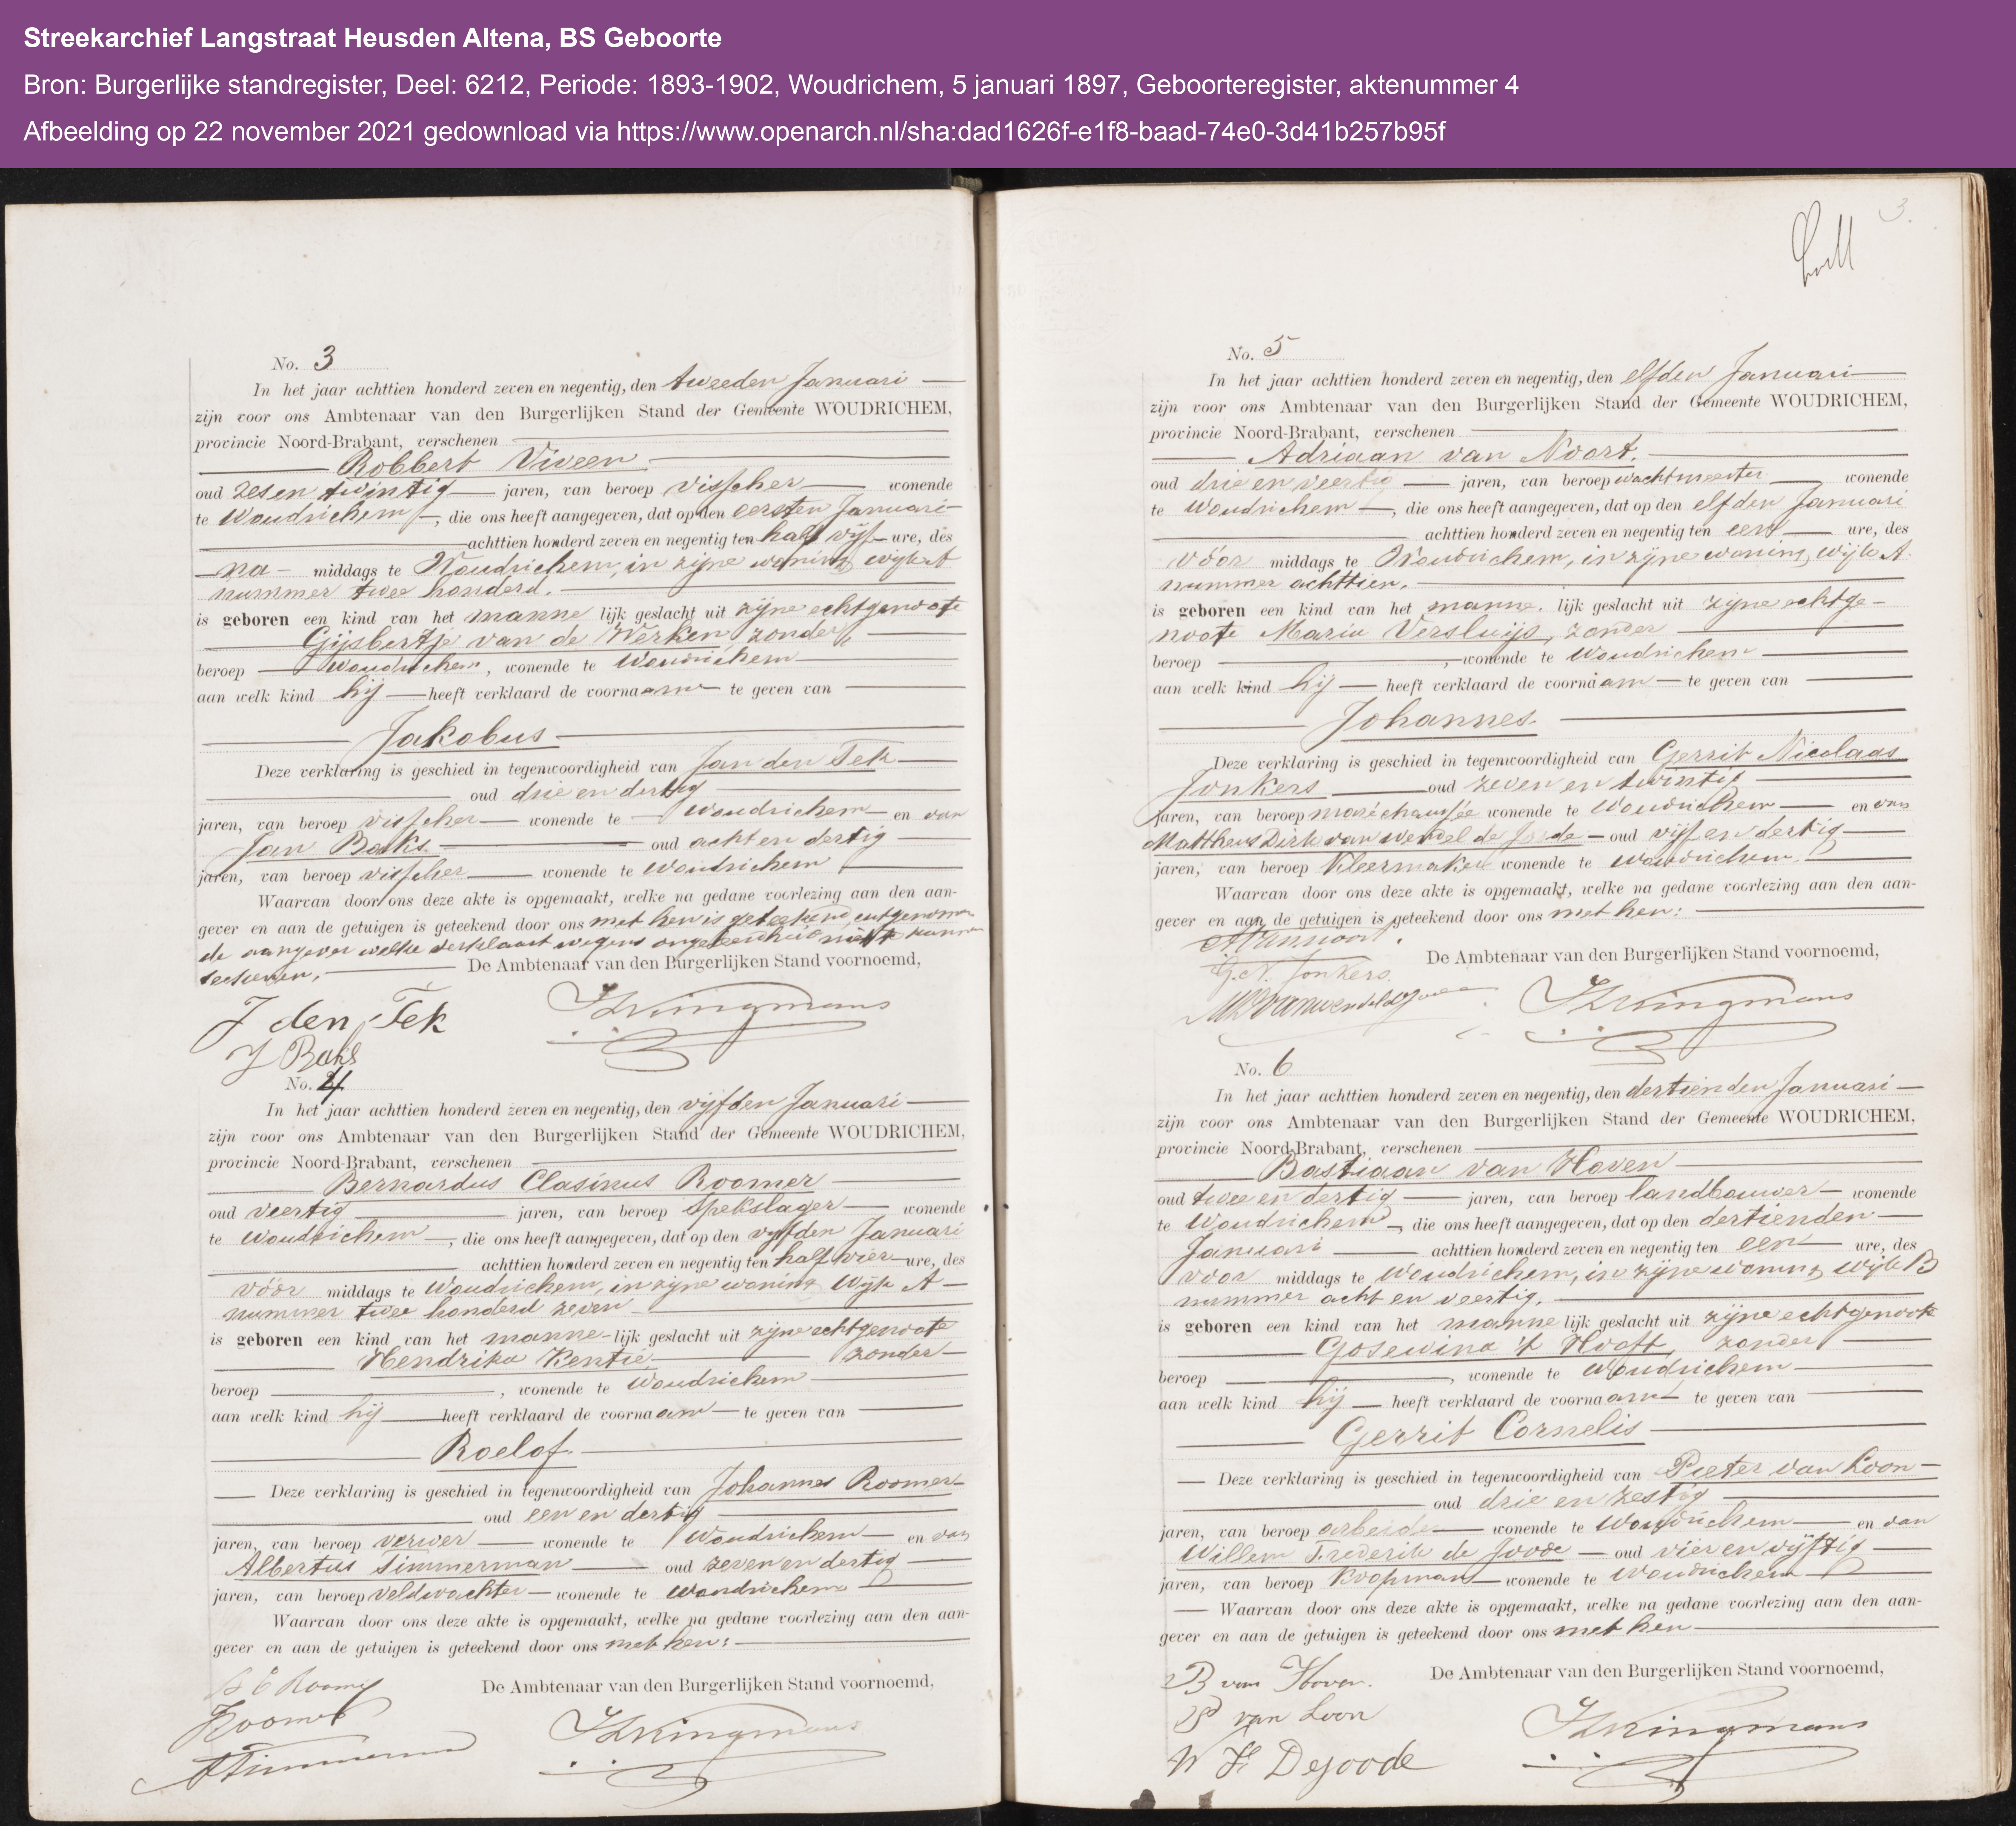 Streekarchief Langstraat Heusden Altena, BS Geboorte
Bron: Burgerlijke standregister, Deel: 6212, Periode: 1893-1902, Woudrichem, 5 januari 1897, Geboorteregister, aktenummer 4
Afbeelding op 22 november 2021 gedownload via https://www.openarch.nl/sha:dad1626f-e1f8-baad-74e0-3d41b257b95f
No. 3
In het jaar achttien honderd zeven en negentig, den tweeden Januari
zijn voor ons Ambtenaar van den Burgerlijken Stand der Gemeente WOUDRICHEM,
provincie Noord-Brabant, verschenen
Robbert Viveen
oud zesen twintig jaren, van beroep visscher wonende
te Woudrichem, die ons heeft aangegeven, dat op den eersten Januari
achttien honderd zeven en negentig ten half vijf ure, des
na middags te Woudrichem, in zijne woning wijk A
nummer twee honderd.
is geboren een kind van het manne lijk geslacht uit zijne echtgenoote
Gijsbertje van de Werken zonder
beroep Woudrichem, wonende te Woudrichem
aan welk kind hij heeft verklaard de voornaam te geven van
Jakobus
Deze verklaring is geschied in tegenwoordigheid van Jan den Tek
oud drie en dertig
jaren, van beroep visscher wonende te Woudrichem en van
Jan Baks oud acht en dertig
jaren, van beroep visscher wonende te Woudrichem
Waarvan door ons deze akte is opgemaakt, welke na gedane voorlezing aan den aan-
gever en aan de getuigen is geteekend door ons met hen is geteekend, uitgenomen
de aangever welke verklaart wegens ongeleerdheid niet te kunnen
teekenen.
De Ambtenaar van den Burgerlijken Stand voornoemd,
J den Tek
J Baks
No. 4
In het jaar achttien honderd zeven en negentig, den vijfden Januari
zijn voor ons Ambtenaar van den Burgerlijken Stand der Gemeente WOUDRICHEM,
provincie Noord-Brabant, verschenen
Bernardus Clasinus Roomer
oud veertig jaren, van beroep Spekslager wonende
te Woudrichem, die ons heeft aangegeven, dat op den vijfden Januari
achttien honderd zeven en negentig ten half vier ure, des
vóór middags te Woudrichem, in zijne woning Wijk A
nummer twee honderd zeven
is geboren een kind van het manne-lijk geslacht uit zijne echtgenoote
Hendrika Kentie zonder
beroep , wonende te Woudrichem
aan welk kind hij heeft verklaard de voornaam te geven van
Roelof
Deze verklaring is geschied in tegenwoordigheid van Johannes Roomer
oud een en dertig
jaren, van beroep verwer wonende te Woudrichem en van
Albertus Timmerman oud zeven en dertig
jaren, van beroep veldwachter wonende te Woudrichem
Waarvan door ons deze akte is opgemaakt, welke na gedane voorlezing aan den aan-
gever en aan de getuigen is geteekend door ons met hen:
De Ambtenaar van den Burgerlijken Stand voornoemd,
B C Roomer
JRoomer
ATimmerman
3.
No. 5
In het jaar achttien honderd zeven en negentig, den elfden Januari
zijn voor ons Ambtenaar van den Burgerlijken Stand der Gemeente WOUDRICHEM,
provincie Noord-Brabant, verschenen
Adriaan van Noort.
oud drie en veertig jaren, van beroep wachtmeester wonende
te Woudrichem, die ons heeft aangegeven, dat op den elfden Januari
achttien honderd zeven en negentig ten een ure, des
vóór middags te Woudrichem, in zijne woning, Wijk A.
nummer achttien.
is geboren een kind van het manne. lijk geslacht uit zijne echtge-
noote Maria Versluijs, zonder
beroep , wonende te Woudrichem
aan welk kind hij heeft verklaard de voornaam te geven van
Johannes
Deze verklaring is geschied in tegenwoordigheid van Gerrit Nicolaas
Jonkers oud zeven en twintig
jaren, van beroep marechaussée wonende te Woudrichem en van
Mattheus Dirk van Wendel de Joode oud vijf en dertig
jaren, van beroep Kleermaker wonende te Woudrichem.
Waarvan door ons deze akte is opgemaakt, welke na gedane voorlezing aan den aan-
gever en aan de getuigen is geteekend door ons met hen:
A van noort.
De Ambtenaar van den Burgerlijken Stand voornoemd,
G.N. Jonkers
No. 6
In het jaar achttien honderd zeven en negentig, den dertienden Januari
zijn voor ons Ambtenaar van den Burgerlijken Stand der Gemeente WOUDRICHEM,
provincie Noord-Brabant, verschenen
Bastiaan van Hoven
oud twee en dertig jaren, van beroep landbouwer wonende
te Woudrichem, die ons heeft aangegeven, dat op den dertienden
Januari achttien honderd zeven en negentig ten een ure, des
voor middags te Woudrichem, in zijne woning wijk B
nummer acht en veertig.
is geboren een kind van het manne lijk geslacht uit zijne echtgenoote
Gosewina 't Hooft, zonder
beroep , wonende te Woudrichem
aan welk kind hij heeft verklaard de voornaam te geven van
Gerrit Cornelis
Deze verklaring is geschied in tegenwoordigheid van Pieter van Loon
oud drie en zestig
jaren, van beroep arbeider wonende te Woudrichem en van
Willem Frederik de Joode oud vier en vijftig
jaren, van beroep Koopman wonende te Woudrichem
Waarvan door ons deze akte is opgemaakt, welke na gedane voorlezing aan den aan-
gever en aan de getuigen is geteekend door ons met hen
B van Hoven.
De Ambtenaar van den Burgerlijken Stand voornoemd,
P van Loon
W F Dejoode